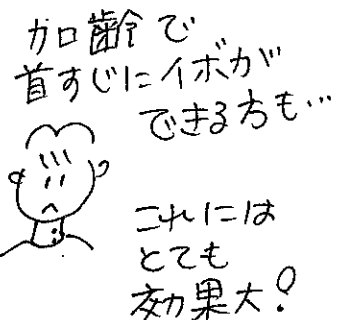 加齢で
首すじにイボが
できる方も…
これには
とても
効果大!